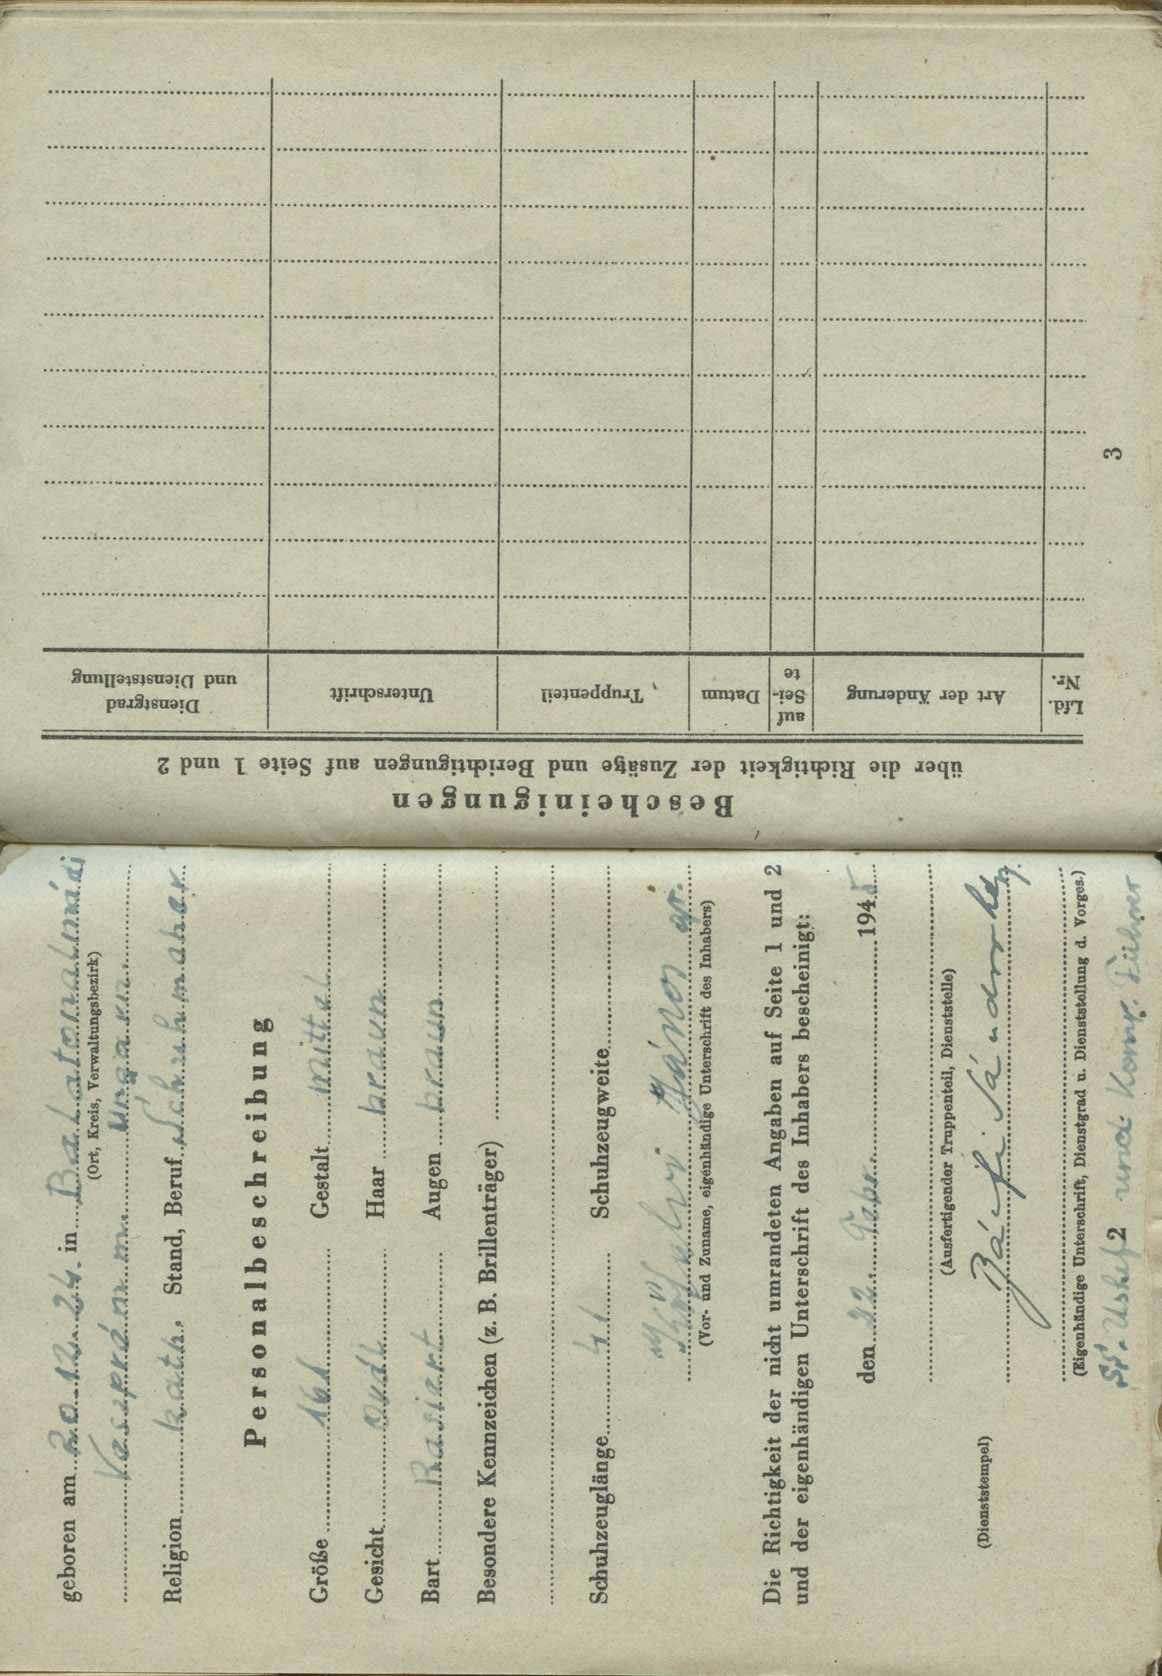 geboren am 20.12.24. in Balatonalmádi
(Ort, Kreis, Verwaltungsbezirk)
Veszprém m. Ungarn.
Religion kath. Stand, Beruf Schuhmaher.
Personalbeschreibung
Größe 161 Gestalt mittel
Gesicht Gesicht Haar braun
Bart Rasiert Augen braun
Besondere Kennzeichen (z. B. Brillenträger)
Schuhzeuglänge 41 Schuhzeugweite
János
(Vor- und Zuname, eigenhändige Unterschrift des Inhabers)
Die Richtigkeit der nicht umrandeten Angaben auf Seite 1 und 2
und der eigenhändigen Unterschrift des Inhabers bescheinigt:
den 22. 1945
(Ausfertigender Truppenteil, Dienststelle)
Sándor
(Dienststempel)
(Eigenhändige Unterschrift, Dienstgrad u. Dienststellung d. Vorges.)
und Komp. Führer
2
Bescheinigungen
über die Richtigkeit der Zusätze und Berichtigungen auf Seite 1 und 2
Lfd. Nr.
Art der Änderung
auf Sei-te
Datum
Truppenteil
Unterschrift
Dienstgrad
und Dienststellung
3